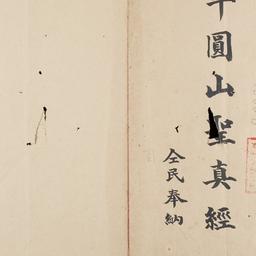 圓山聖真經
仝民奉納